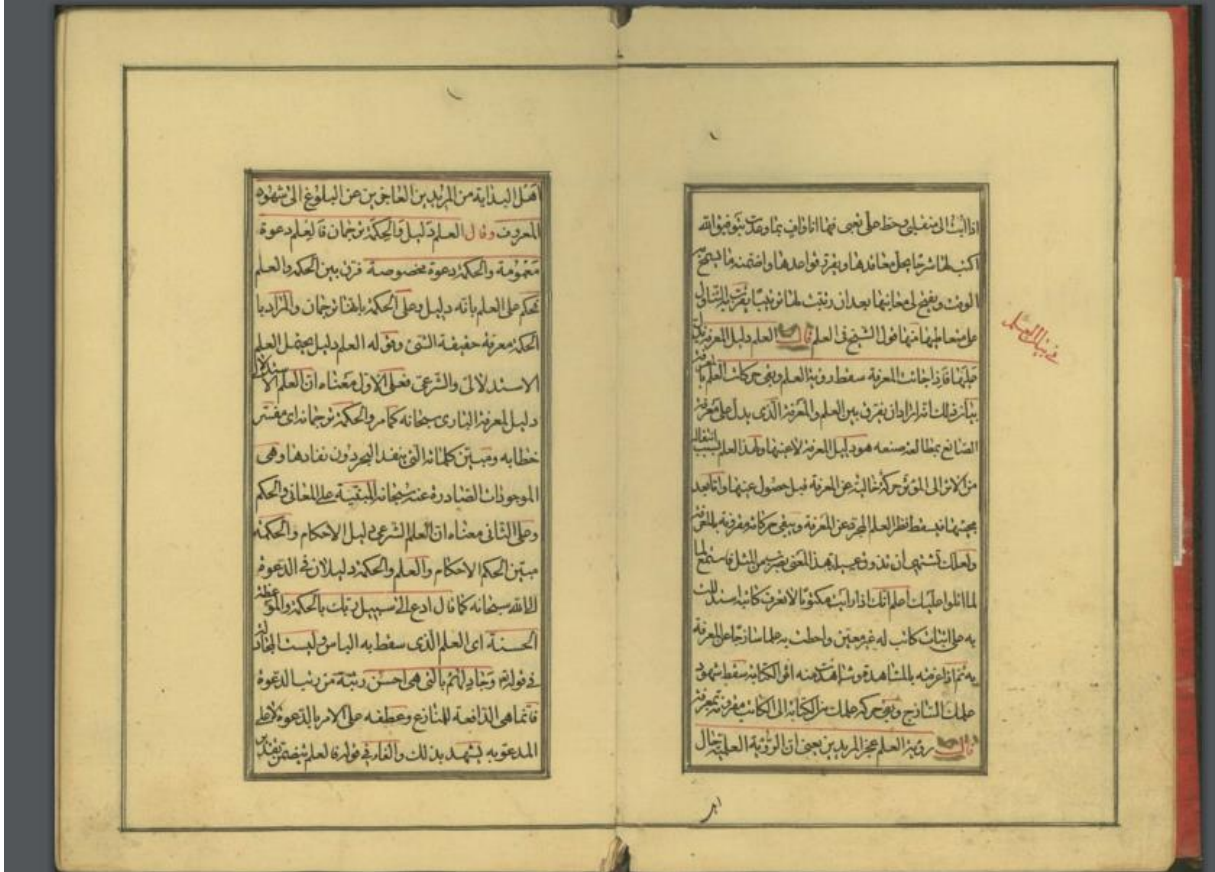 اذا البت الى منقبلى وحظ على نعبى فها انا واف بما وعدت بتوفيق الله
اكتب لها شرحا يحل معاقدها ويقرر قواعدها واضمنه ما يسمح
الوقت ويفيض من معانيها بعد ان رتبت لها ترتيبا يقرب به التناول
من مناطيها منها قول الشيخ فى العلم قال العلم دليل المعرفة يدل
عليها فاذا جائت المعرفة سقط رؤية العلم وبقى حركات العلم بالمعرفة
بيان ذلك انه اراد ان يفرق بين العلم والمعرفة الذى يدل على معرفة
الصانع بمطالعة صنعه هو دليل المعرفة لا عينها ولهذا العلم بسبب انتقاله
من الاثر الى المؤثر حركة خالية عن المعرفة قبل حصول عينها واما بعد
مجيئها فيسقط نظر العلم المجرد عن المعرفة ويبقى حركاته مقرونة بالمعرفة
ولعلك تشتهى ان تذوق عسيلة هذا المعنى بضرب من المثل فاستمع
لما اتلوا عليك اعلم انك اذا رايت مكتوبا لا تعرف كاتبه استدللت
به على اثبات كاتب له غير معين واحطت به علما ساذجا عن المعرفة
به ثم اذا عرفته بالمشاهدة وشاهدت منه اثر الكتابة سقط شهود
علمك الساذج وبقى حركة علمك من الكتابة الى الكاتب مقرونة بمعرفة
قال رؤية العلم عجز المريدين يعنى ان الرؤية العلمية حال
فى بيان العلم
اهل البداية من المريدين العاجزين عن البلوغ الى شهود
المعروف وقال العلم دليل والحكمة ترجمان فالعلم دعوة
معمومة والحكمة دعوة مخصوصة قرن بين الحكمة والعلم
فحكم على العلم بانه دليل وعلى الحكمة بانها ترجمان والمراد با
الحكمة معرفة حقيقة الشئ وقوله العلم دليل يحتمل العلم
الاستدلالى والشرعى فعلى الاول معناه ان العلم الاستدلالى
دليل لمعرفة البارى سبحانه كما مر والحكمة ترجمانه اى مفسر
خطابه ومبين كلماته التى ينفد البحر دون نفادها وهى
الموجودات الصادرة عنه سبحانه المبتنية على المعانى والحكم
وعلى الثانى معناه ان العلم الشرعى دليل الاحكام والحكمة
مبين الحكم الاحكام والعلم والحكمة دليلان فى الدعوة
الى الله سبحانه كما قال ادع الى سبيل ربك بالحكمة والموعظة
الحسنة اى العلم الذى سقط به الباس وليست المجادلة
فى قوله وجادلهم بالتى هى احسن رتبة من رتب الدعوة
فانما هى الدافعة للمنازع وعطفه على الامر بالدعوة لا على
المدعو به يشهد بذلك والفاء فى قوله فالعلم